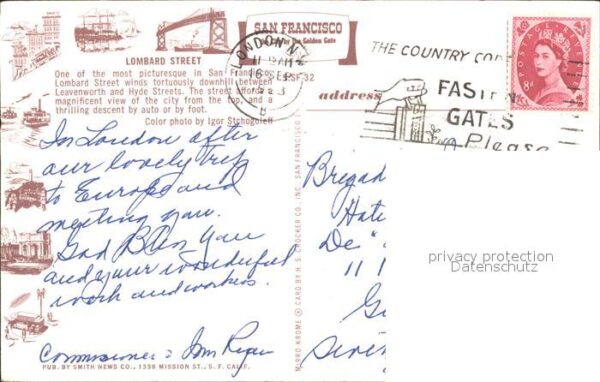 SAN FRANCISCO
the Golden Gate
LOMBARD STREET
One of the most picturesque in San
Lombard Street winds tortuously downhill between
Leavenworth and Hyde Streets. The street affords a
magnificent view of the city from the top, and a
thrilling descent by auto or by foot.
Color photo by Igor Stchogoleff
LONDON N.
SEP
THE COUNTRY CO
FASTEN
GATES
Please
address
In London after
our lovely trip
to Europe and
meeting you.
God Bless You
and your wonderful
work and workers.
Commissioner & Tom
PUB. BY SMITH NEWS CO., 1336 MISSION ST., S. F. CALIF.
MIRRO-KROME ® CARD BY H. S. CROCKER CO., INC. SAN FRANCISCO
Brigad
Hate
De
11
G
privacy protection
Datenschutz